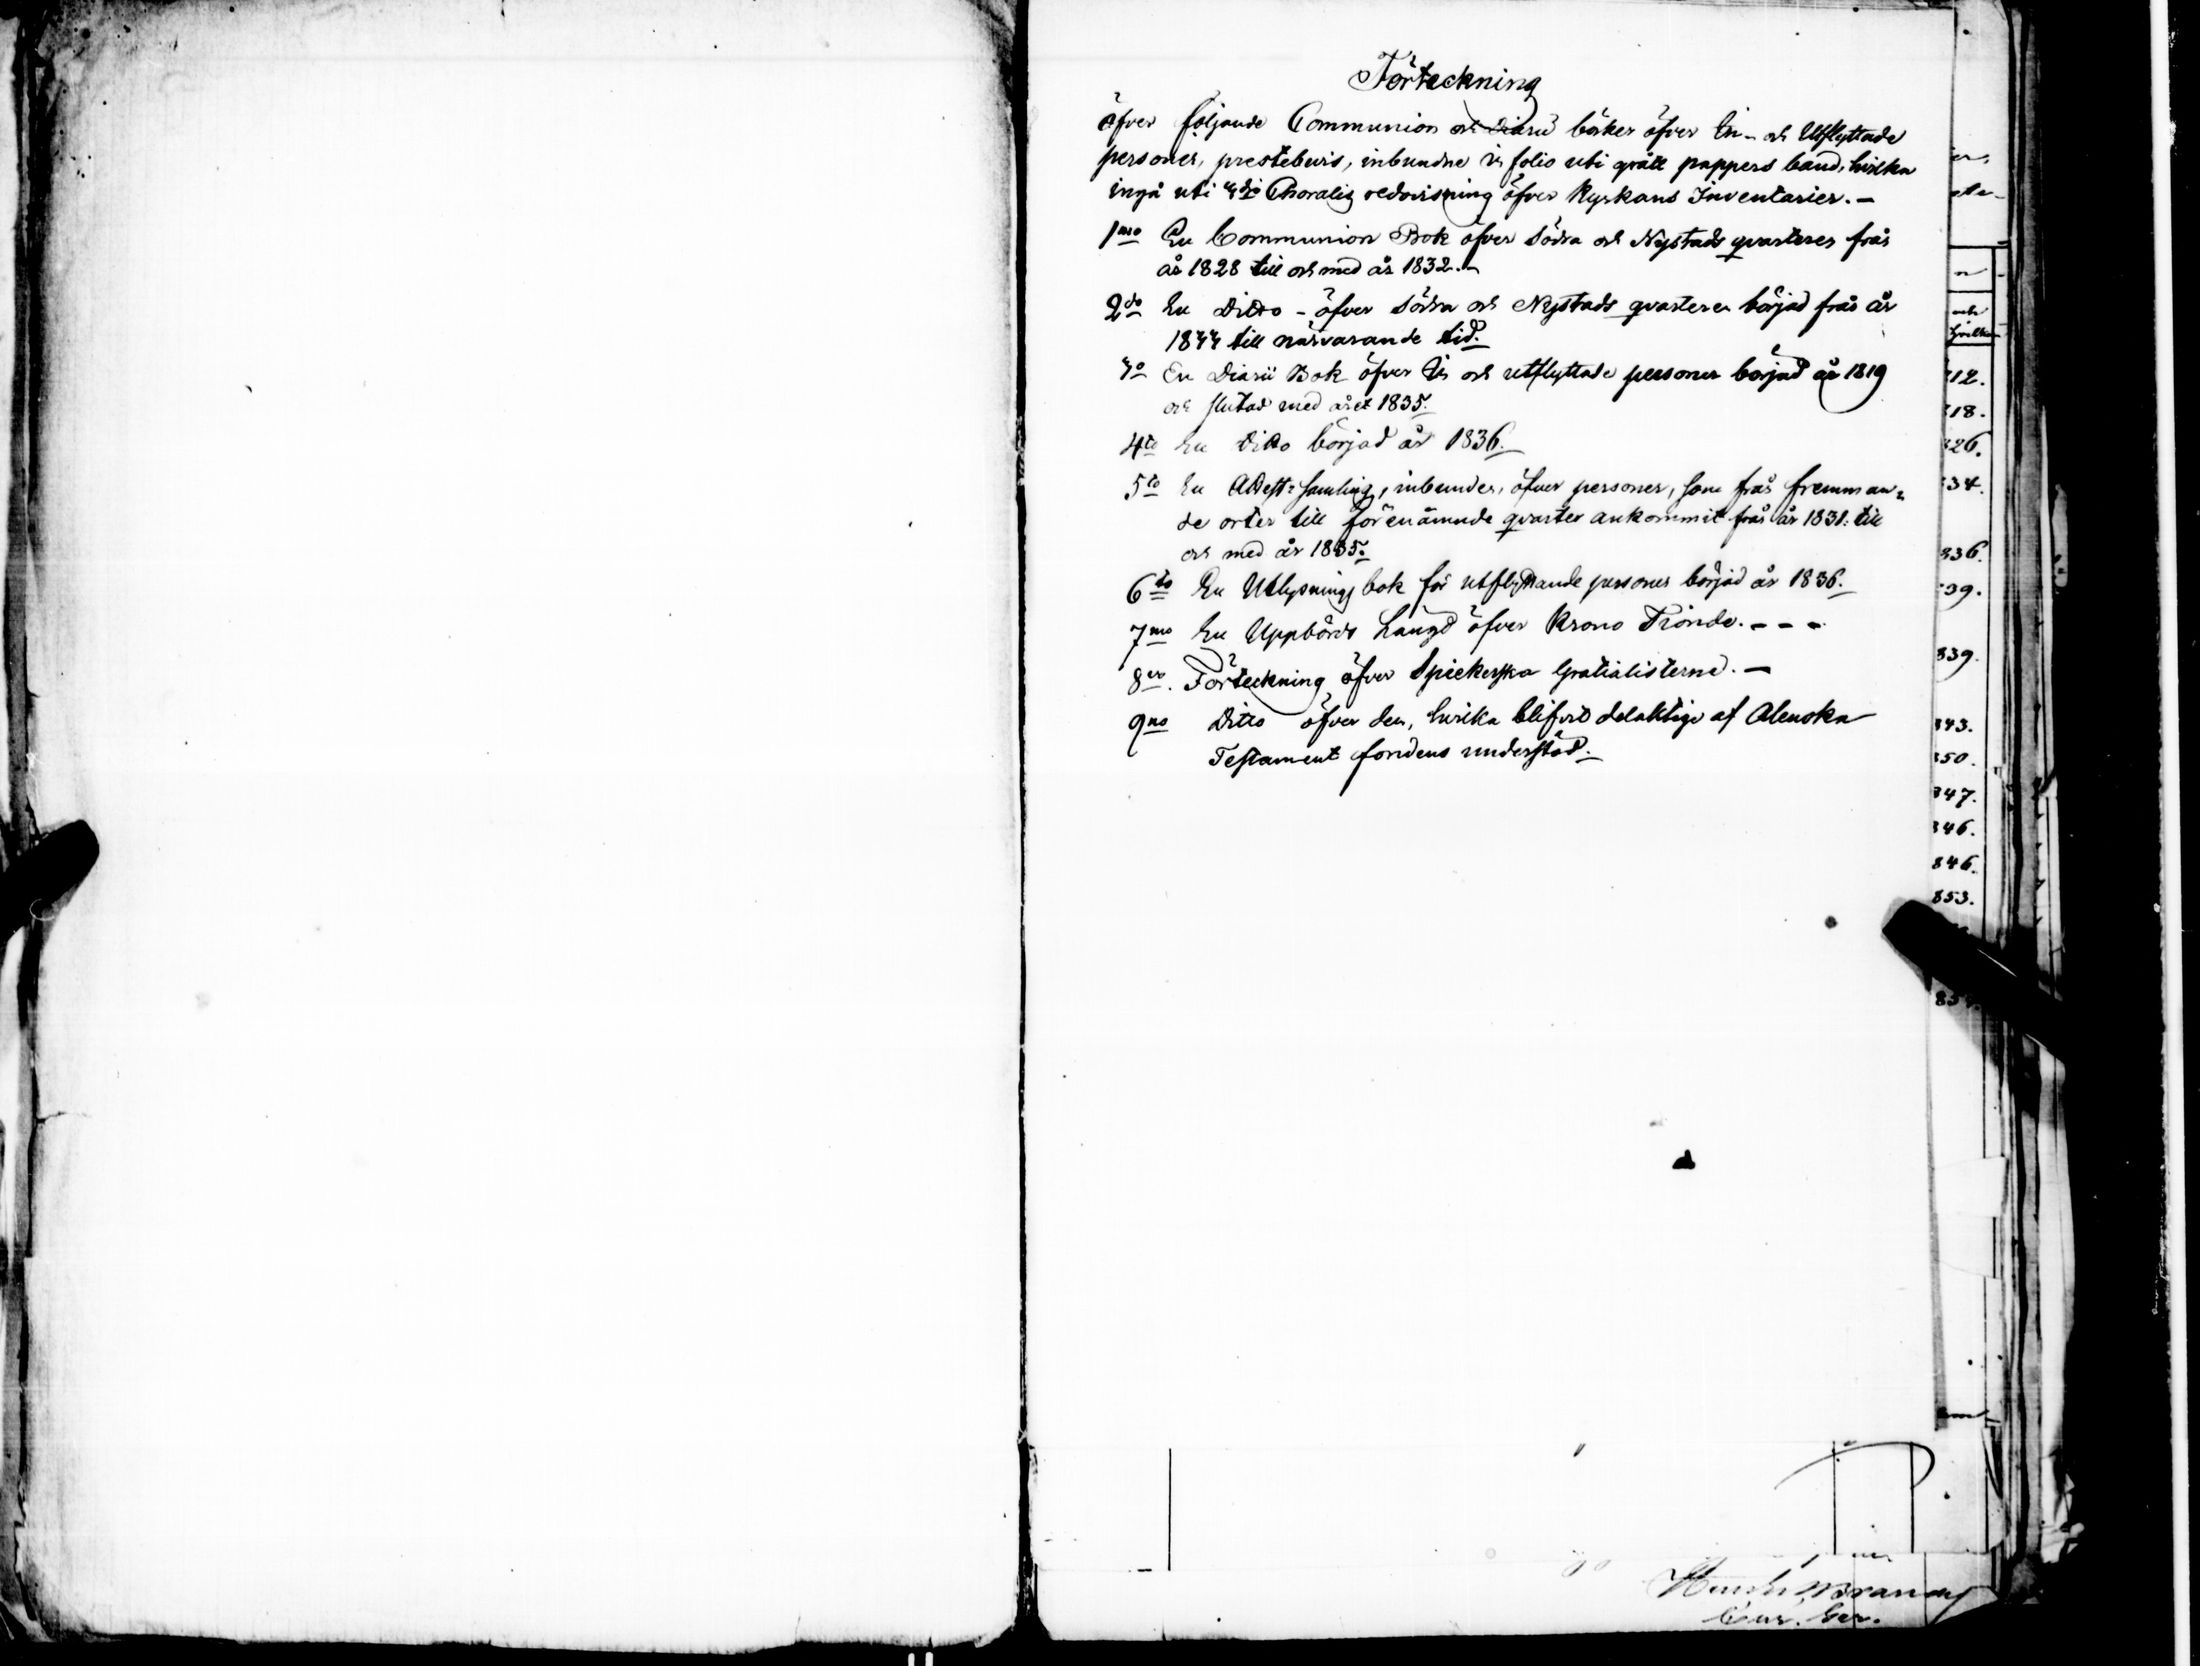 Förteckning
öfver följande Communion och Diarii böcker öfver In- och Utflyttade
personer, prestebevis, inbundne in folio uti grått pappers band, hvilka
ingå uti redovisning öfver Kyrkans Inventarier. -
1mo En Communion Bok öfver Södra och Nystads qvarteren från
år 1828 till och med år 1832. -
2do En Ditto - öfver Södra och Nystads qvarteren börjad från år
1833 till närvarande tid.
3o En Diarii Bok öfver In och utflyttade personer börjad år 1819
och slutad med året 1835.
4to En Ditto börjad år 1836.
5to En Attest-samling, inbunden, öfver personer, som från fremman-
de orter till förenämnde qvarter ankommit från år 1831. till
och med år 1835.
6to En Utlysnings bok för utflyttande personer börjad år 1836.
7mo En Uppbörds Längd öfver Krono Tionde. - - -
8vo. Förteckning öfver Spiekerska Gratialisterne. -
9no Ditto öfver dem, hvilka blifvit delaktige af
Testament fondens understöd.
er,
och
hvilka
312.
318.
326.
334.
836.
839.
839.
843.
850.
847.
846.
846.
853.